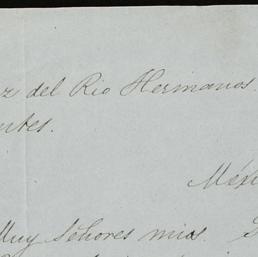 z del Rio Hermanos.
ntes.
Méxi
Muy Señores mios.